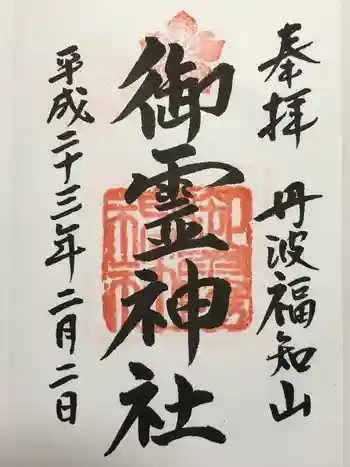 奉拝 丹波福知山
御霊神社
平成二十三年二月二日